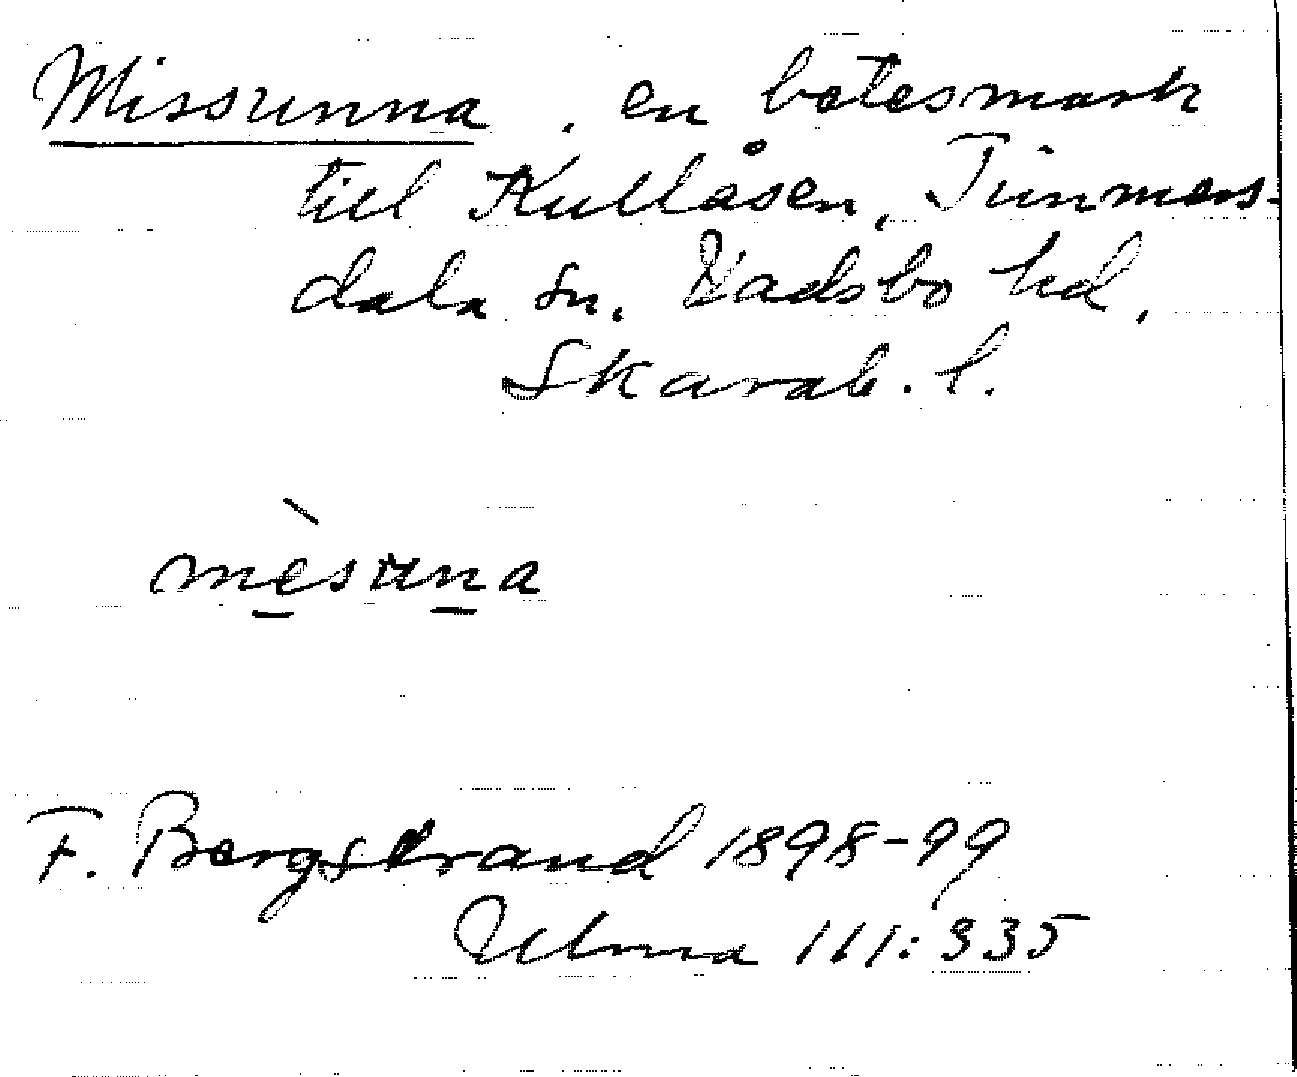 Missunna, en betesmark
till Kullåsen, Timmers-
dala sn. Vadsbo hd,
Skarab. l.
mèsuna
F. Bergstrand 1898-99
Ulma 111:335